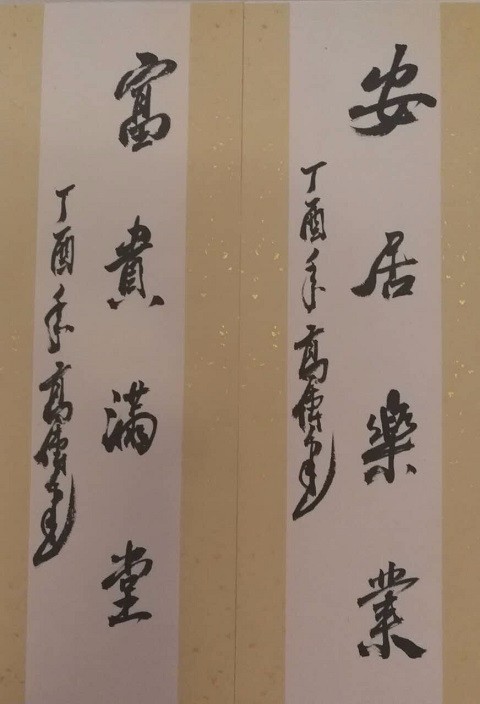 安居樂業
丁酉年高
富貴滿堂
丁酉年高